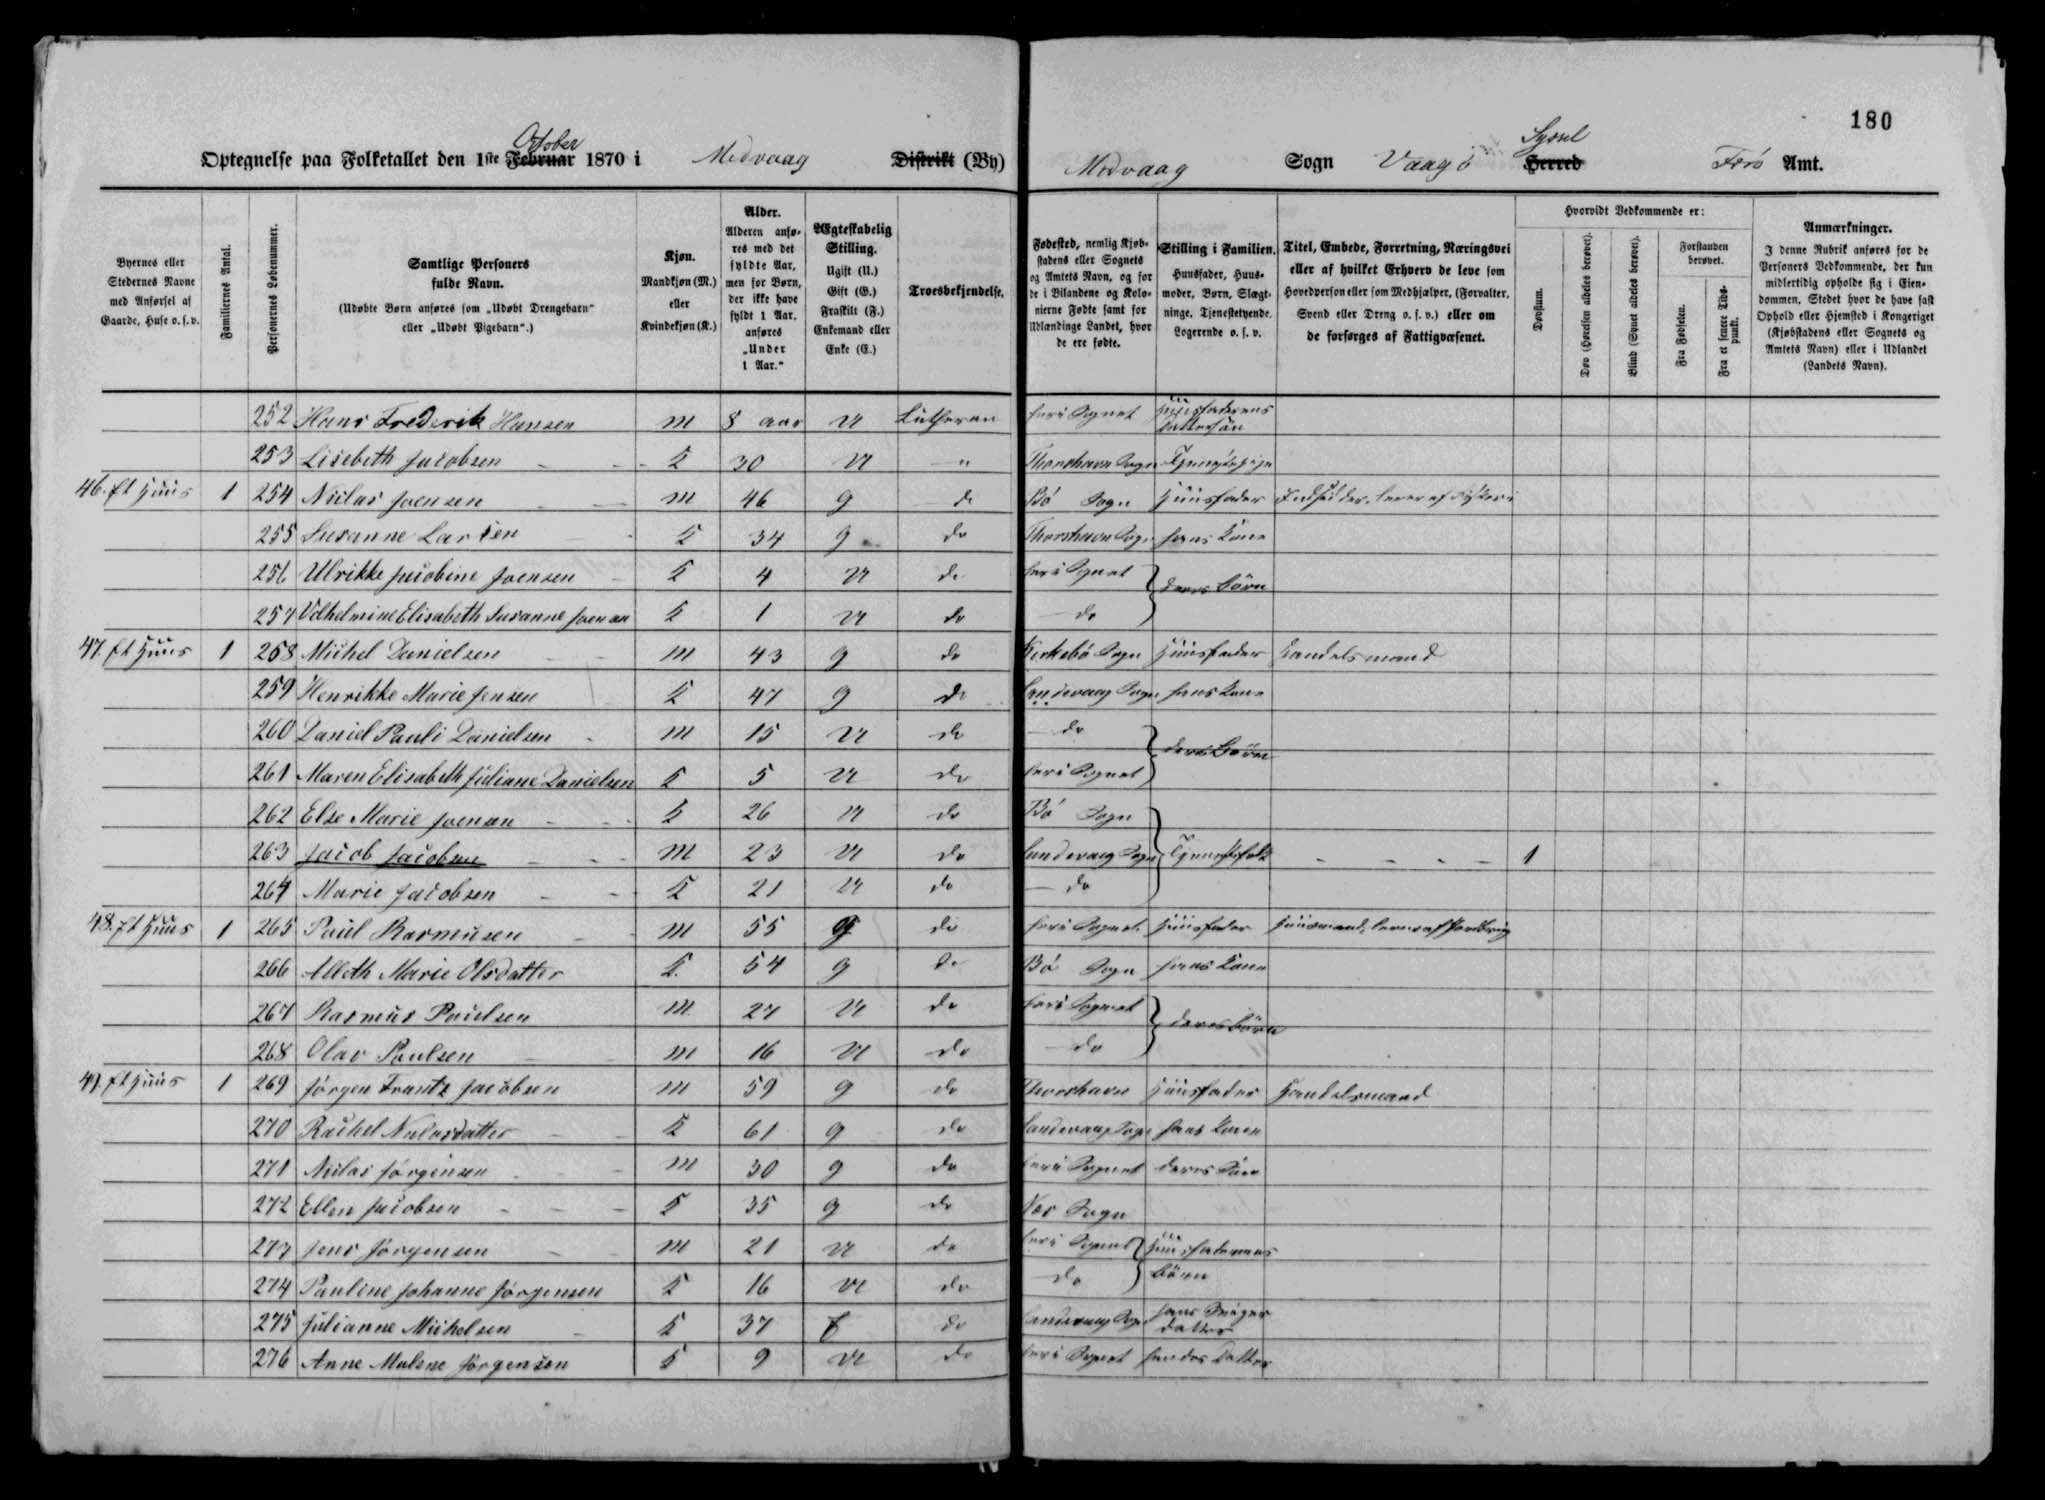 180
Optegnelse paa Folketallet den 1ste Februar October 1870 i Midvaag Distrikt (By) Midvaag Sogn Vaagö Herred Syssel Færö Amt.
Byernes eller Stedernes Navne med Anførsel af Gaarde, Huse o. s. v.
Familiernes Antal.
Personernes Løbenummer.
Samtlige Personers fulde Navn.
(Udøbte Børn anføres som „Udøbt Drengebarn“ eller „Udøbt Pigebarn“.)
Kjøn.
Mandkjøn (M.) eller Kvindekjøn (K.)
Alder.
Alderen anføres med det fyldte Aar, men for Børn, der ikke have fyldt 1 Aar, anføres „Under 1 Aar.“
Ægteskabelig Stilling.
Ugift (U.) Gift (G.) Fraskilt (F.) Enkemand eller Enke (E.)
Troesbekjendelse.
Fødested, nemlig Kjøbstadens eller Sognets og Amtets Navn, og for de i Bilandene og Kolonierne Fødte samt for Udlændinge Landet, hvor de ere fødte.
Stilling i Familien.
Huusfader, Huusmoder, Børn, Slægtninge, Tjenestetyende, Logerende o. s. v.
Titel, Embede, Forretning, Næringsvei eller af hvilket Erhverv de leve som Hovedperson eller som Medhjælper, (Forvalter, Svend eller Dreng o. s. v.) eller om de forsørges af Fattigvæsenet.
Hvorvidt Vedkommende er:
Døvstum.
Døv (Hørelsen aldeles berøvet).
Blind (Synet aldeles berøvet).
Forstanden berøvet.
Fra Fødselen.
Fra et senere Tidspunkt.
Anmærkninger.
I denne Rubrik anføres for de Personers Vedkommende, der kun midlertidig opholde sig i Eiendommen, Stedet hvor de have fast Ophold eller Hjemsted i Kongeriget (Kjøbstadens eller Sognets og Amtets Navn) eller i Udlandet (Landets Navn).
252 Hans Frederik Hansen M 8 aar U Lutheran her i Sognet Huusfaderens Dattersön
253 Lisebeth Jacobsen K 30 U " Thorshavn Sogn Tjenestepige
46. Et Huus 1 254 Niclas Joensen M 46 G do Bö Sogn Huusfader Indsidder, lever af Fiskeri
255 Susanne Larsen K 34 G do Thorshavn Sogn hans Kone
256 Ulrikke Jacobine Joensen K 4 U do her i Sognet } deres Börn
257 Vilhelmine Elisabeth Susanne Joensen K 1 U do do
47. Et Huus 1 258 Michel Danielsen M 43 G do Kirkebö Sogn Huusfader Handelsmand
259 Henrikke Marie Jensen K 47 G do Sandevaag Sogn hans Kone
260 Daniel Pauli Danielsen M 15 U do do } deres Börn
261 Maren Elisabeth Juliane Danielsen K 5 U do her i Sognet
262 Else Marie Joensen K 26 U do Bö Sogn
263 Jacob Jacobsen M 23 U do Sandevaag Sogn } Tjenestefolk - - - - 1
264 Marie Jacobsen K 21 U do do
48. Et Huus 1 265 Paul Rasmusen M 55 G do her i Sognet Huusfader Huusmand, lever af Jordbrug
266 Alleth Marie Olsdatter K. 54 G do Bö Sogn hans Kone
267 Rasmus Paulsen M. 27 U do her i Sognet } deres Börn
268 Olav Paulsen M 16 U do do
49. Et Huus 1 269 Jörgen Frantz Jacobsen M 59 G do Thorshavn Huusfader Handelsmand
270 Rachel Niclasdatter K 61 G do Sandevaag Sogn hans Kone
271 Niclas Jörgensen M 30 G do her i Sognet deres Sön
272 Ellen Jacobsen K 35 G do Næs Sogn
273 Jens Jörgensen M 21 U do her i Sognet } Huusfaderens
274 Pauline Johanne Jörgensen K 16 U do do Börn
275 Julianne Michelsen K 37 do Sandevaag Sogn hans Sviger datter
276 Anne Malene Jörgensen K 9 U do her i Sognet hendes Datter